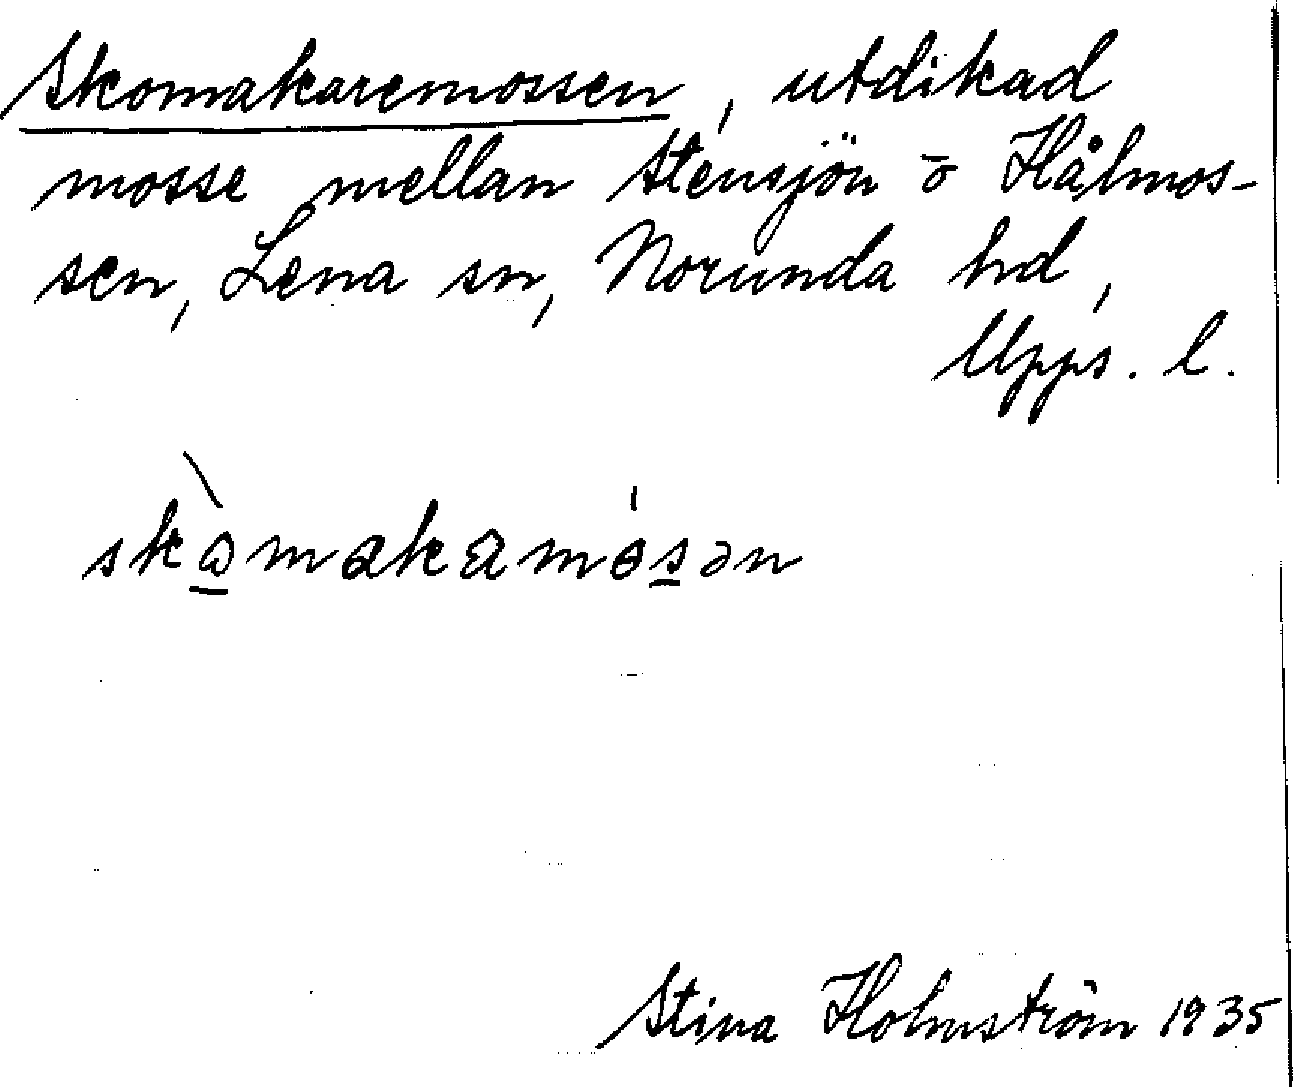 Skomakaremossen, utdikad
mosse mellan Stensjön o Hålmos-
sen, Lena sn, Norunda hd,
Upps. l.
skòmakamósən
Stina Holmström 1935